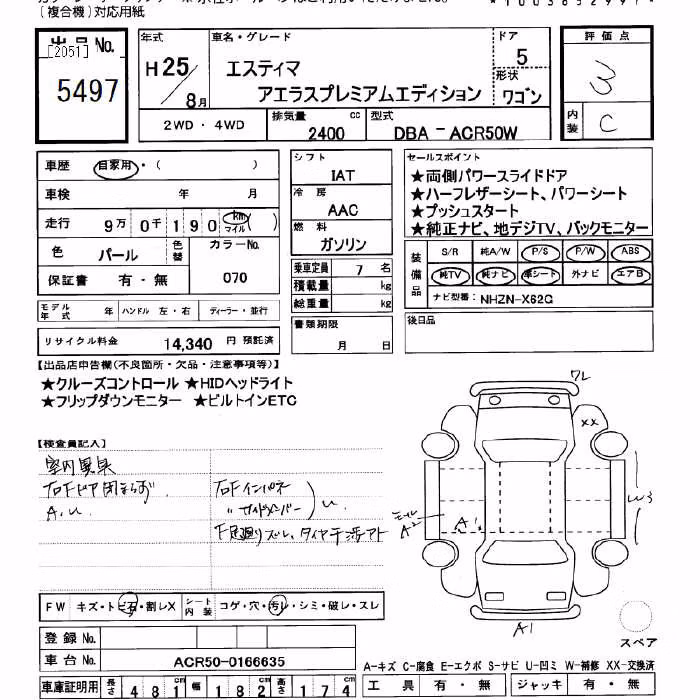 (複合機)対応用紙
出品No.
[2051]
5497
年式
H25/8月
車名・グレード
エスティマ
アエラスプレミアムエディション
ドア
5
形状
ワゴン
評価点
3
内装
C
2WD・4WD
排気量
2400 cc
型式
DBA-ACR50W
車歴 自家用・( )
車検 年 月
走行 9万0千190 km マイル ( )
色 パール 色替 カラーNo. 070
保証書 有・無
モデル年式 年 ハンドル 左・右 ディーラー・並行
リサイクル料金 14,340 円 預託済
シフト
IAT
冷房
AAC
燃料
ガソリン
乗車定員 7 名
積載量 kg
総重量 kg
書類期限
月 日
セールスポイント
★両側パワースライドドア
★ハーフレザーシート、パワーシート
★プッシュスタート
★純正ナビ、地デジTV、バックモニター
装備品
S/R 純A/W P/S P/W ABS
純TV 純ナビ 革シート 外ナビ エアB
ナビ型番: NHZN-X62G
後日品
【出品店申告欄(不良箇所・欠品・注意事項等)】
★クルーズコントロール ★HIDヘッドライト
★フリップダウンモニター ★ビルトインETC
【検査員記入】
室内異臭
右Fドア閉まらず
A.U
右Fインパネ
〃サイドメンバー
U
F足廻りズレ、タイヤ干渉アト
7L
XX
W3
モール
A2
A1
A1
スペア
FW キズ・トビ石・割レX シート内装 コゲ・穴・汚レ・シミ・破レ・スレ
登録No.
車台No. ACR50-0166635
車庫証明用 長さ 481cm 幅 182cm 高さ 174
A-キズ C-腐食 E-エクボ S-サビ U-凹ミ W-補修 XX-交換済
工具 有・無 ジャッキ 有・無